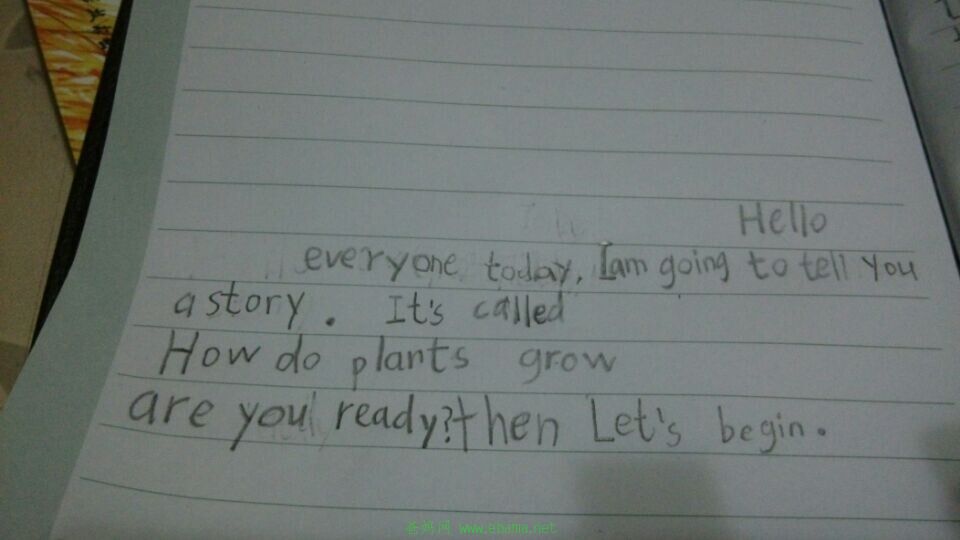 Hello
everyone today, Iam going to tell you
a story. It's called
How do plants grow
are you ready?then Let's begin.
爸妈网 www.ebama.net